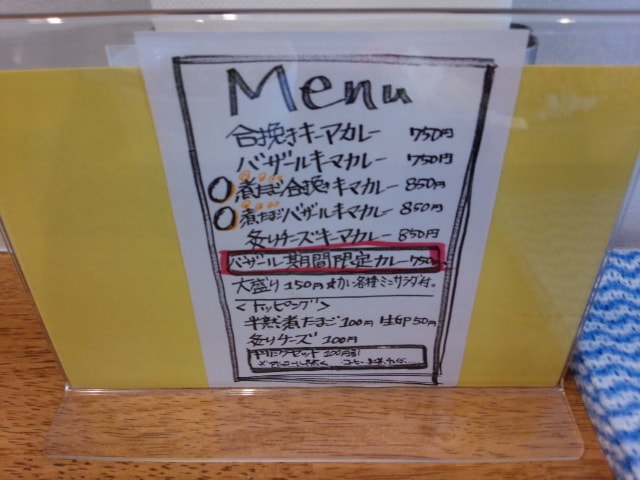 Menu
合挽きキーマカレー 750円
バザールキーマカレー 750円
煮たまご合挽きキーマカレー 850円
煮たまごバザールキーマカレー 850円
炙りチーズキーマカレー 850円
バザール期間限定カレー 750
大盛り 150円 各種ミニサラダ付。
<トッピング>
半熟煮たまご 100円 生卵 50円
炙りチーズ 100円
ドリンクセット 100円